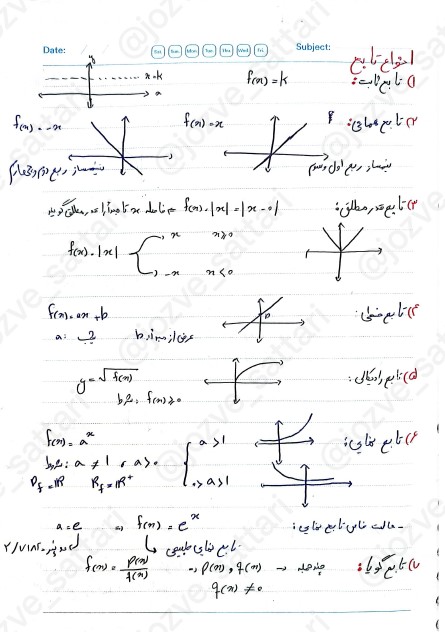 Date: Sat. Sun. Mon. Tue. Thu. Wed. Fri. Subject:
انواع تابع
۱) تابع ثابت: f(x)=k
y
x=k
x
۲) تابع همانی: f(x)=x f(x)=-x
نیمساز ربع اول و سوم نیمساز ربع دوم و چهارم
۳) تابع قدر مطلق: f(x)=|x|=|x-0| ⇒ فاصله x تا مبدأ را قدر مطلق گویند
f(x)=|x| { x x≥0
-x x<0
۴) تابع خطی: f(x)=ax+b
b
a: شیب b: عرض از مبدأ
۵) تابع رادیکالی: y=√f(x)
شرط: f(x)≥0
۶) تابع نمایی: f(x)=a^x { a>1
شرط: a≠1 , a>0
D_f=ℝ R_f=ℝ⁺ 0>a>1
- حالت خاص تابع نمایی: a=e ⇒ f(x)=e^x
۲/۷۱۸۲ تابع نمایی طبیعی
۷) تابع گویا: f(x)=p(x)/q(x) → p(x), q(x) → چندجمله
q(x)≠0
@jozve_sattari